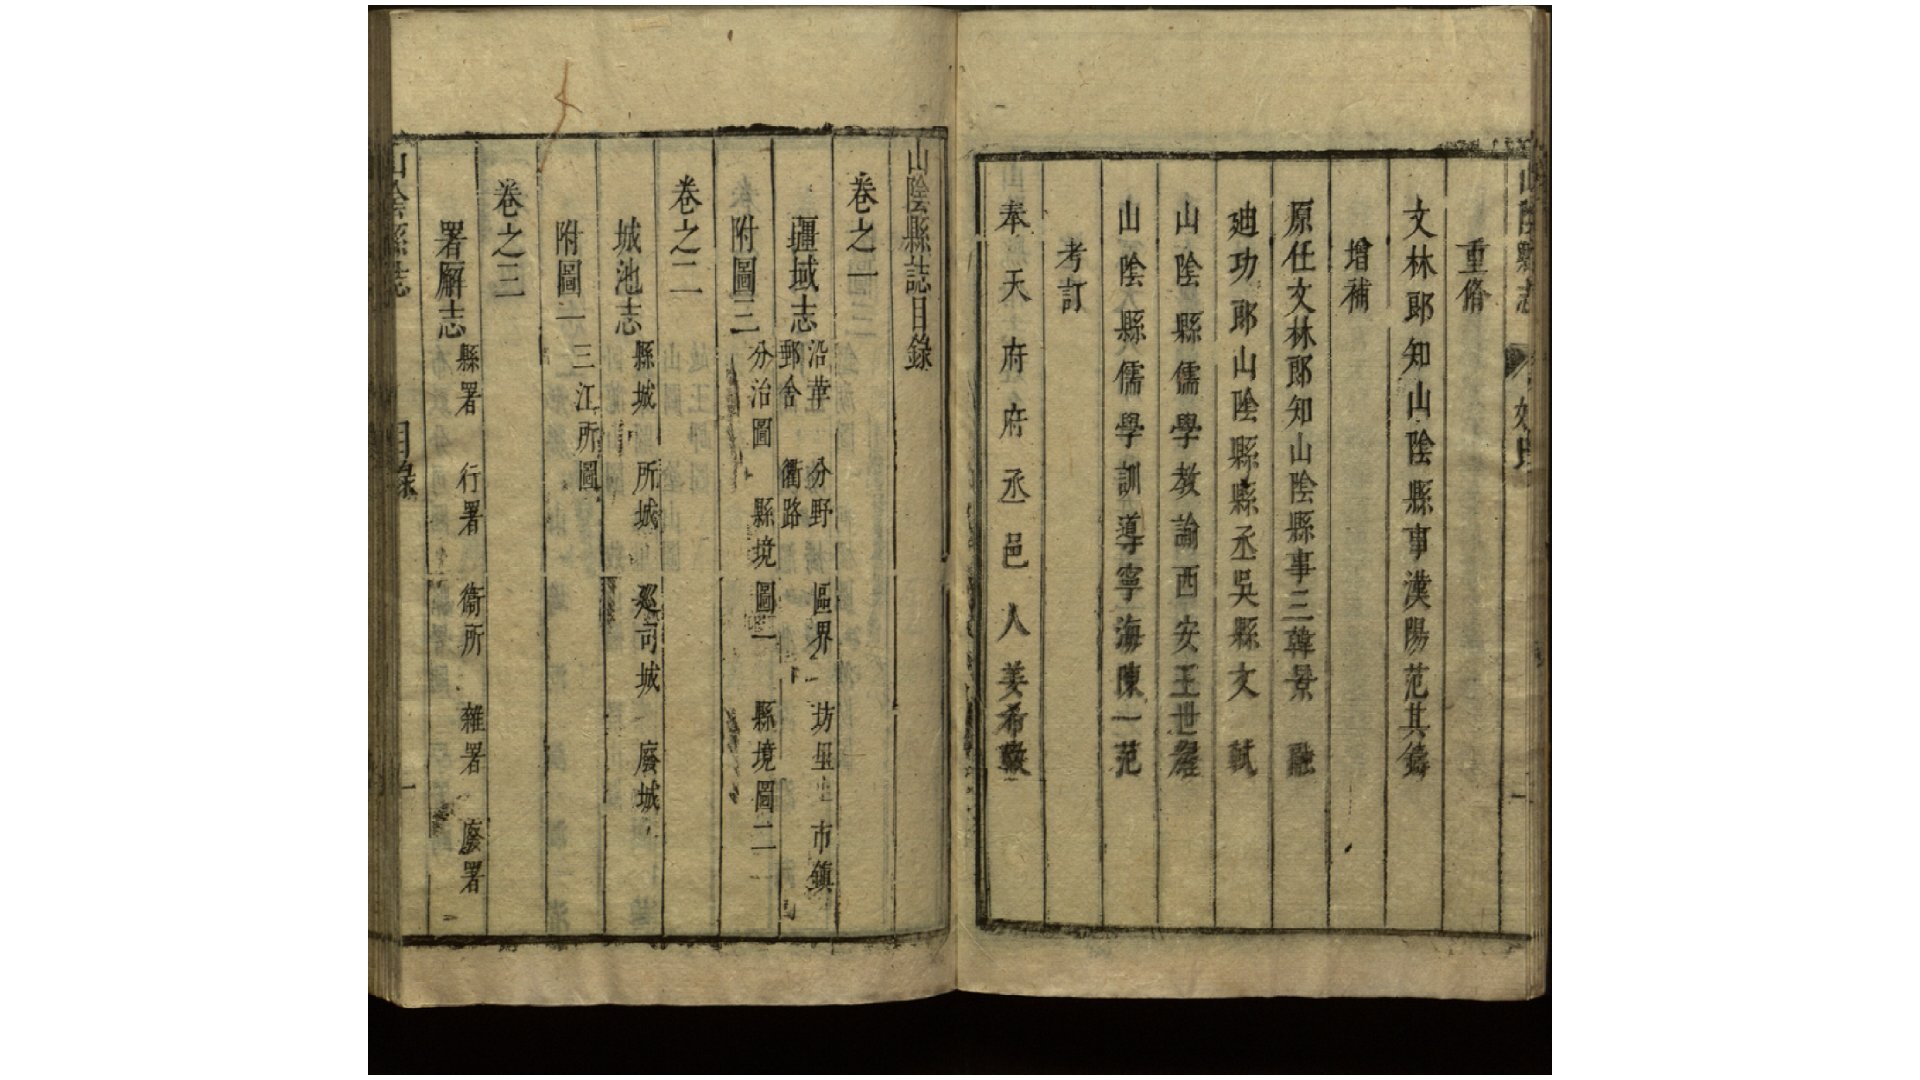 重脩
文林郎知山陰縣事漢陽范其鑄
增補
原任文林郎知山陰縣事三韓景　融
廸功郎山陰縣縣丞吳縣文　軾
山陰縣儒學教諭西安王世耀
山陰縣儒學訓導寧海陳一范
考訂
奉天府府丞邑人姜希轍
山陰縣誌目錄
卷之一
疆域志　沿革　分野　區界　坊里　市鎮
郵舍　衢路
附圖三　分治圖　縣境圖一　縣境圖二
卷之二
城池志　縣城　所城　巡司城　廢城
附圖一　三江所圖
卷之三
署廨志　縣署　行署　衞所　雜署　廢署
山陰縣志　目錄　一